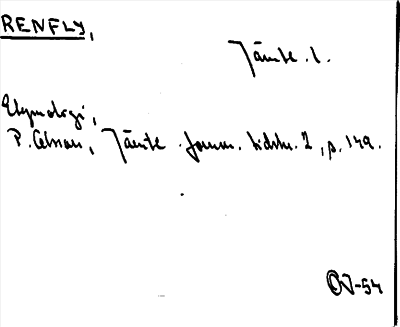 RENFLY,
Jämtl.
Etymologi,
P. Olsson, Jämtl. fornm. tidskr. 2, p. 149.
OJ-54